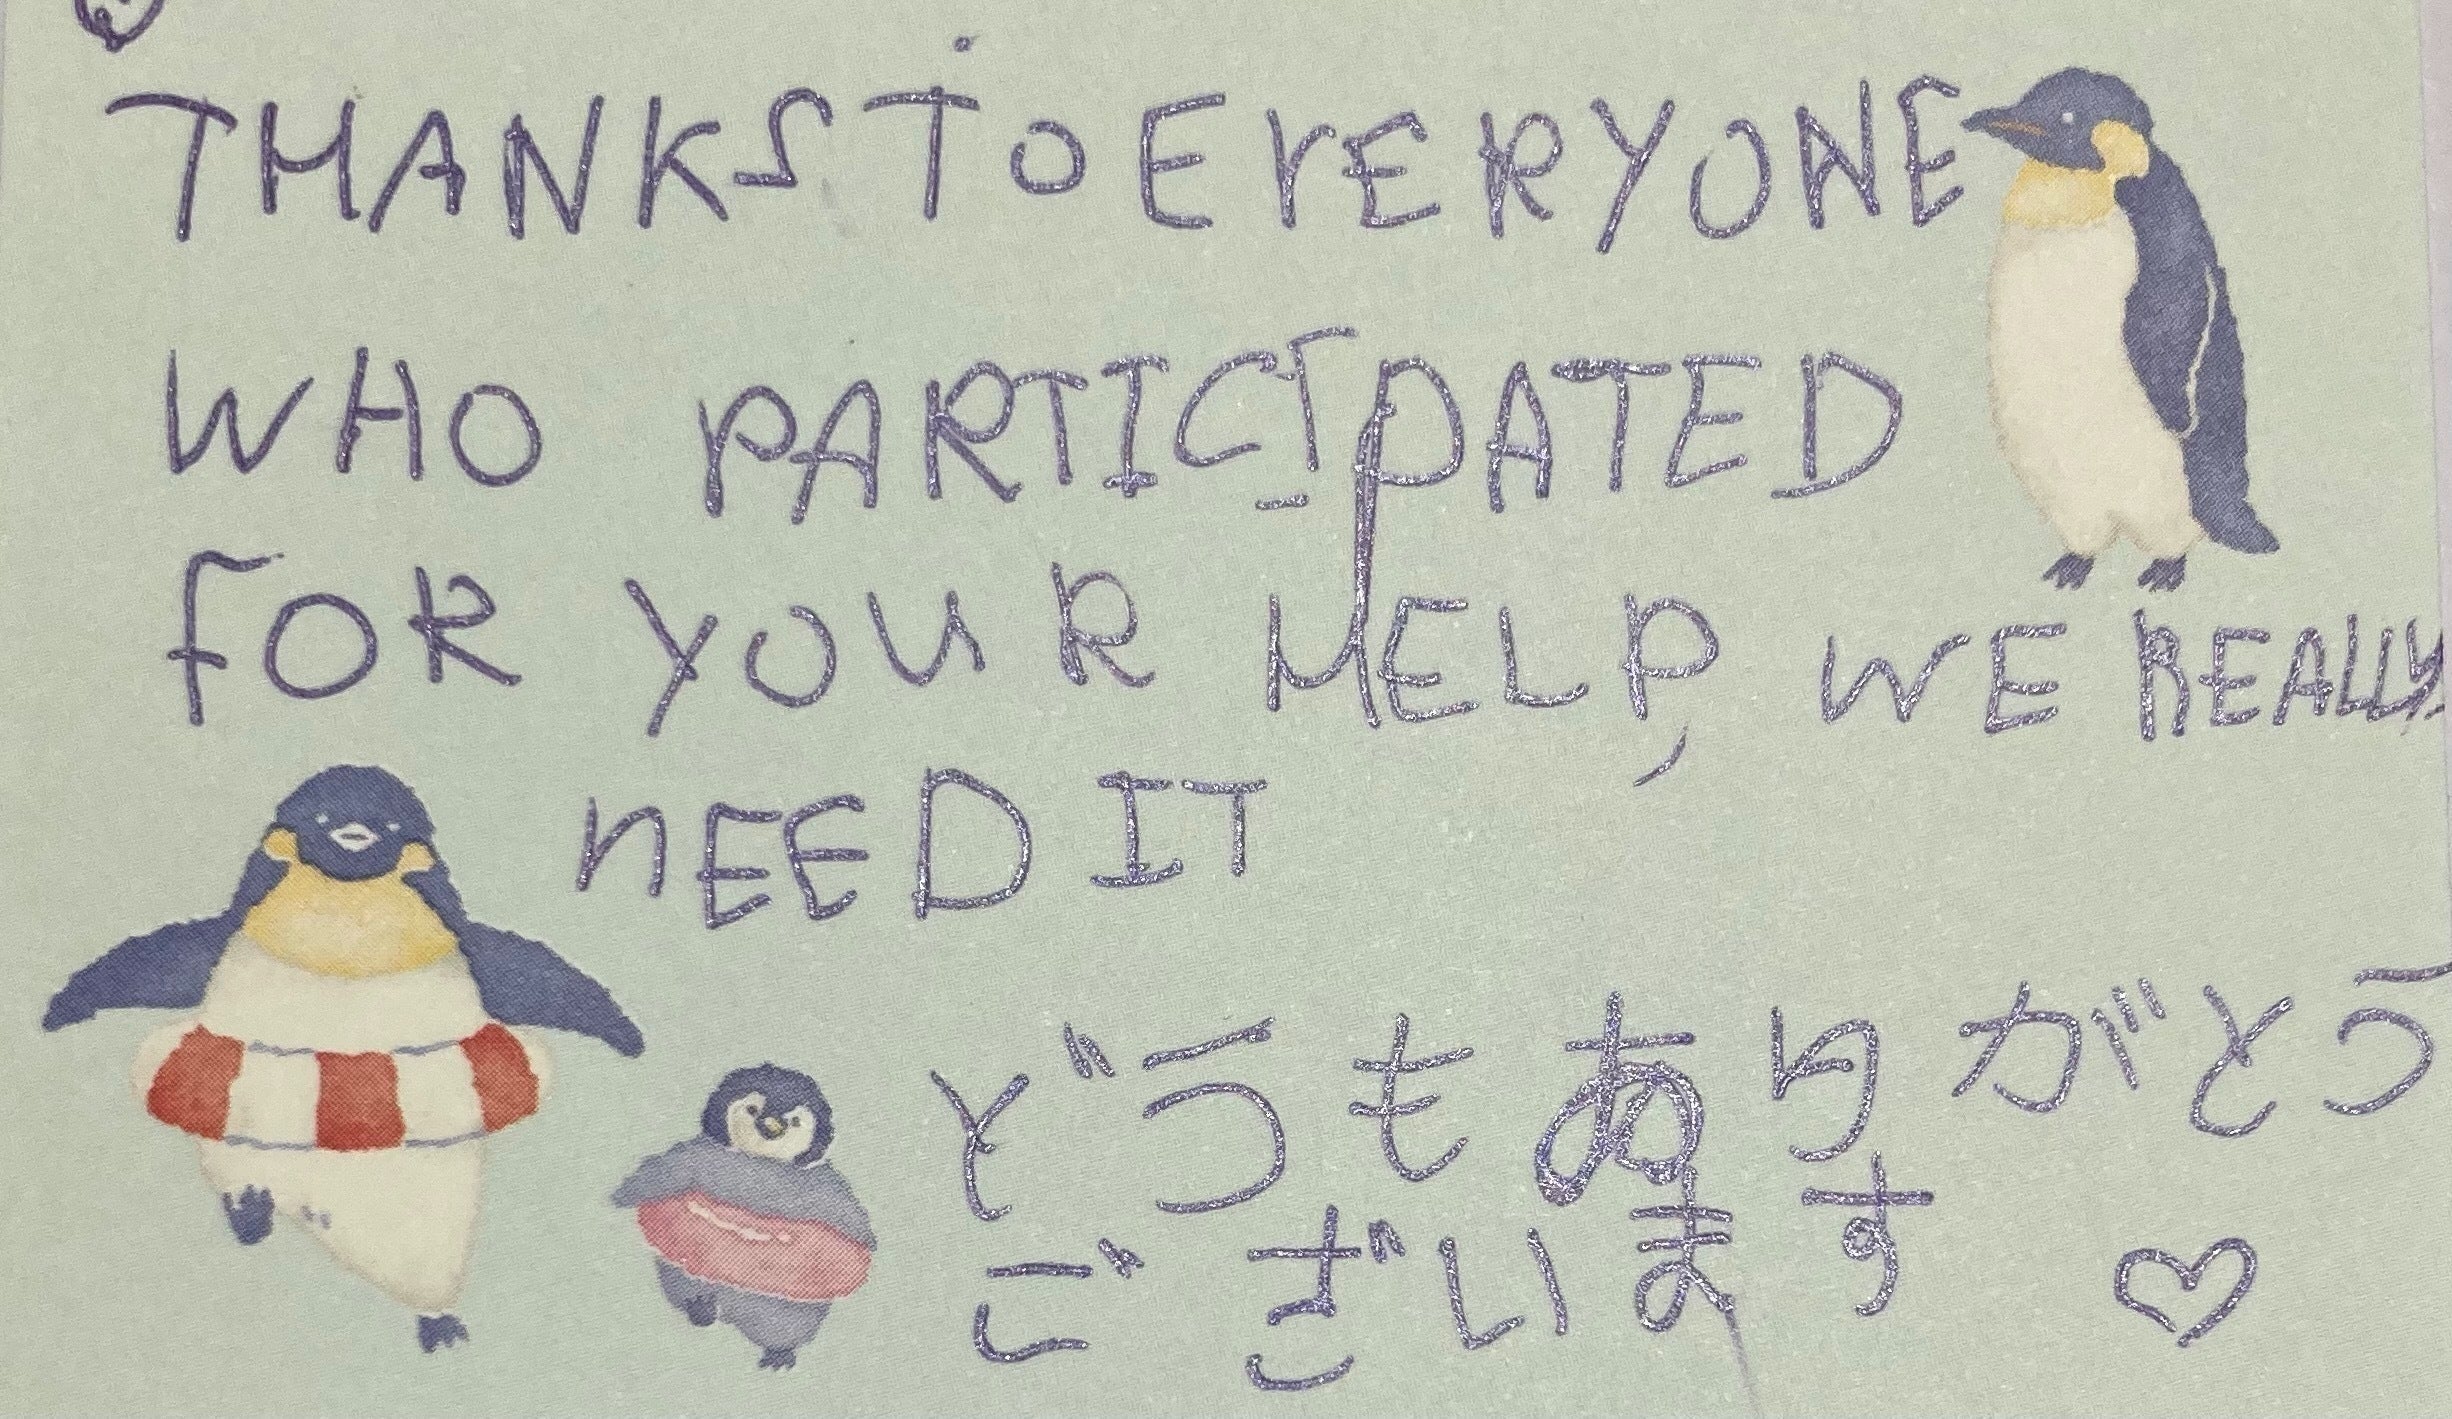 THANKS TO EVERYONE
WHO PARTICIPATED
FOR YOUR HELP, WE REALLY
NEED IT
どうもありがとう
ございます ♡